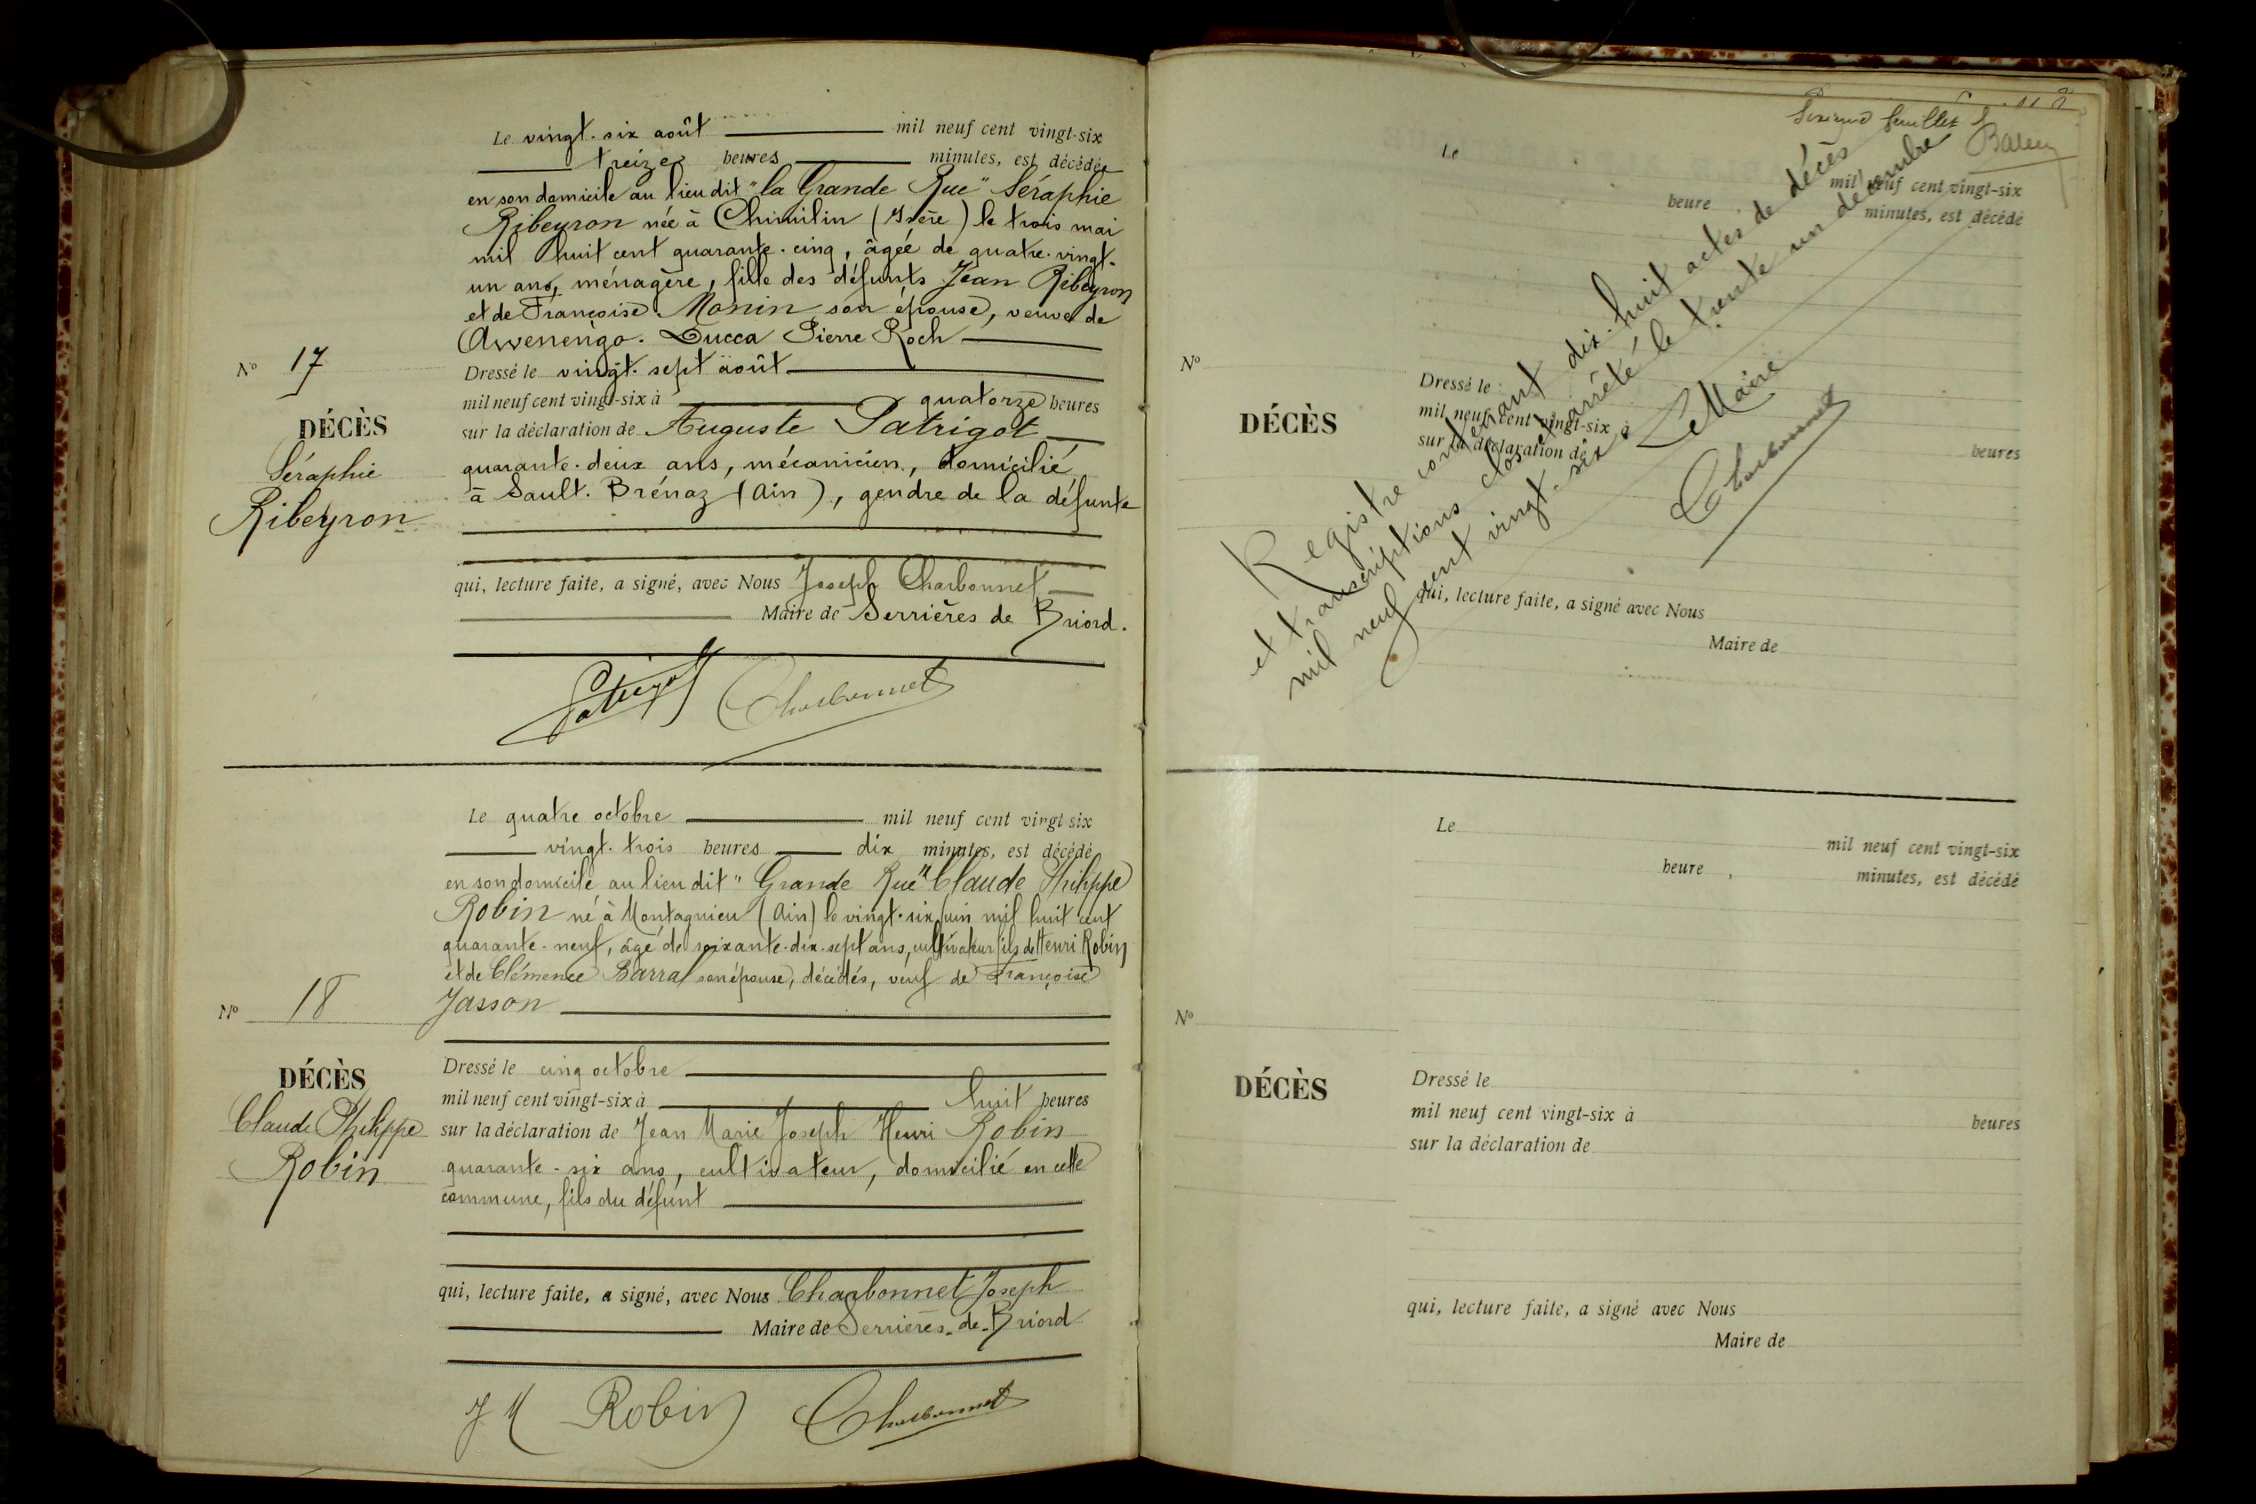 Le vingt-six août mil neuf cent vingt-six
treize heures minutes, est décédée
en son domicile au lieu dit "la Grande Rue" Séraphie
Ribeyron née à Chimilin (Isère) le trois mai
mil huit cent quarante-cinq, âgée de quatre-vingt-
un ans, ménagère, fille des défunts Jean Ribeyron
et de Françoise Monin son épouse, veuve de
Avvenengo-Ducca Pierre Roch
Dressé le vingt-sept août
mil neuf cent vingt-six à quatorze heures
sur la déclaration de Auguste Patrigot
quarante-deux ans, mécanicien, domicilié
à Sault-Brénaz (Ain), gendre de la défunte
qui, lecture faite, a signé, avec Nous Joseph Charbonnet
Maire de Serrières de Briord.
Patrigot Charbonnet
No 17
DÉCÈS
Séraphie
Ribeyron
Le quatre octobre mil neuf cent vingt six
vingt-trois heures dix minutes, est décédé
en son domicile au lieu dit "Grande Rue" Claude Philippe
Robin né à Montagnieu (Ain) le vingt-six juin mil huit cent
quarante-neuf, âgé de soixante-dix-sept ans, cultivateur fils de Henri Robin
et de Clémence Barral son épouse, décédés, veuf de Françoise
Jasson
Dressé le cinq octobre
mil neuf cent vingt-six à huit heures
sur la déclaration de Jean Marie Joseph Henri Robin
quarante-six ans, cultivateur, domicilié en cette
commune, fils du défunt
qui, lecture faite, a signé, avec Nous Charbonnet Joseph
Maire de Serrières-de-Briord
J M Robin Charbonnet
No 18
DÉCÈS
Claude Philippe
Robin
feuillet
Le
mil neuf cent vingt-six
heure minutes, est décédé
No
DÉCÈS
Dressé le
mil neuf cent vingt-six à heures
sur la déclaration de
qui, lecture faite, a signé avec Nous
Maire de
Registre contenant dix-huit actes de décès
et transcriptions clos et arrêté le trente un décembre
mil neuf cent vingt-six Le Maire
Charbonnet
Le mil neuf cent vingt-six
heure minutes, est décédé
No
DÉCÈS
Dressé le
mil neuf cent vingt-six à heures
sur la déclaration de
qui, lecture faite, a signé avec Nous
Maire de